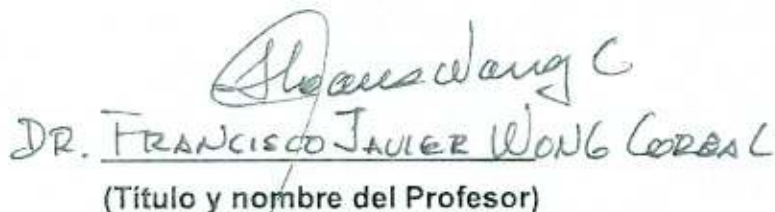 DR. FRANCISCO JAVIER WONG CORRAL
(Título y nombre del Profesor)